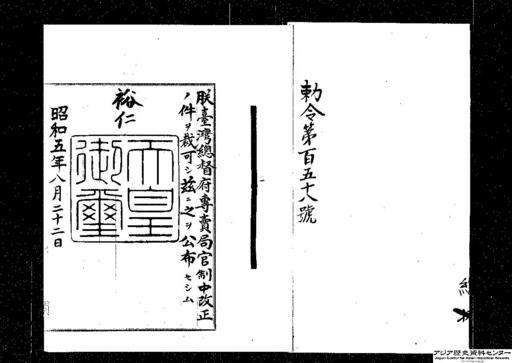 勅令第百五十八號
朕臺灣總督府專賣局官制中改正
ノ件ヲ裁可シ茲ニ之ヲ公布セシム
裕仁
天皇
御璽
昭和五年八月二十二日
アジア歴史資料センター
Japan Center for Asian Historical Records